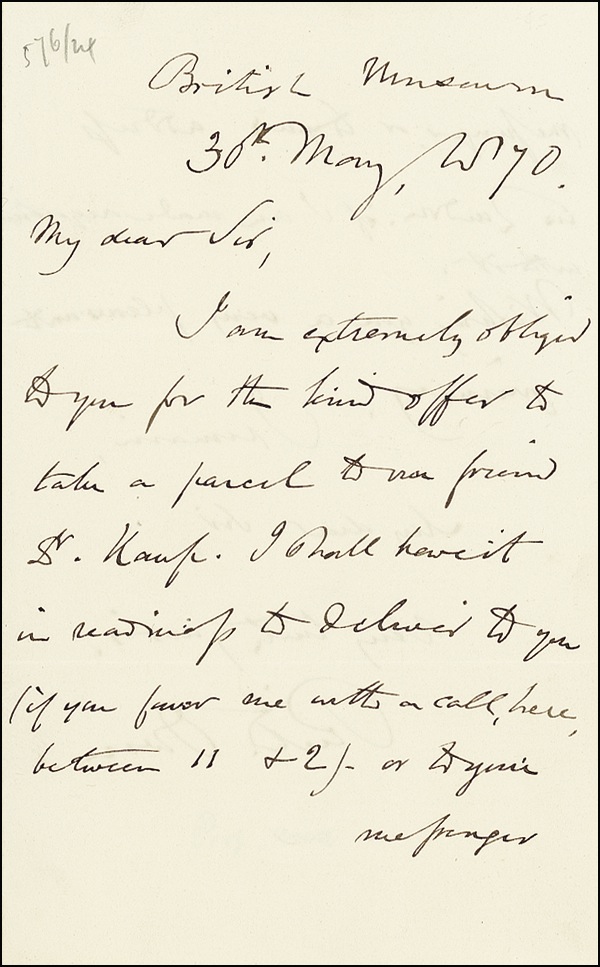 576/24
British Museum
30th. May, 1870.
My dear Sir,
I am extremely obliged
to you for the kind offer to
take a parcel to our friend
Dr. Kaup. I shall have it
in readiness to deliver to you
(if you favor me with a call, here,
between 11 & 2)- or to your
messenger